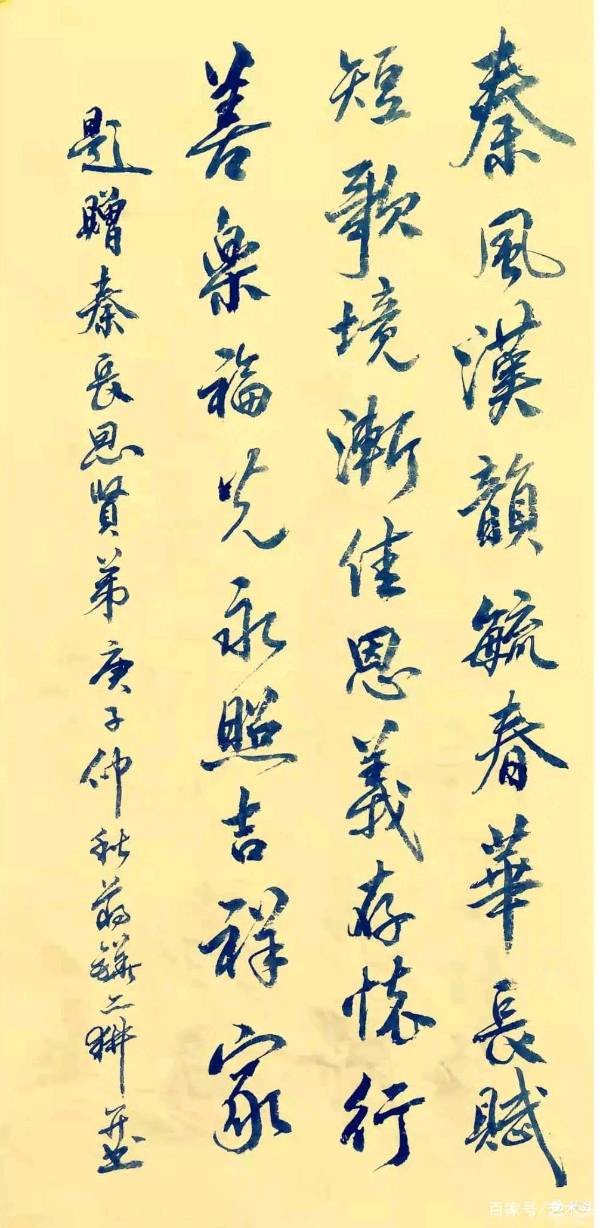 秦風漢韻毓春華長賦
短歌境漸佳恩義存懷行
善樂福光永照吉祥家
題贈秦長恩賢弟庚子仲秋并書
百家号/艺术